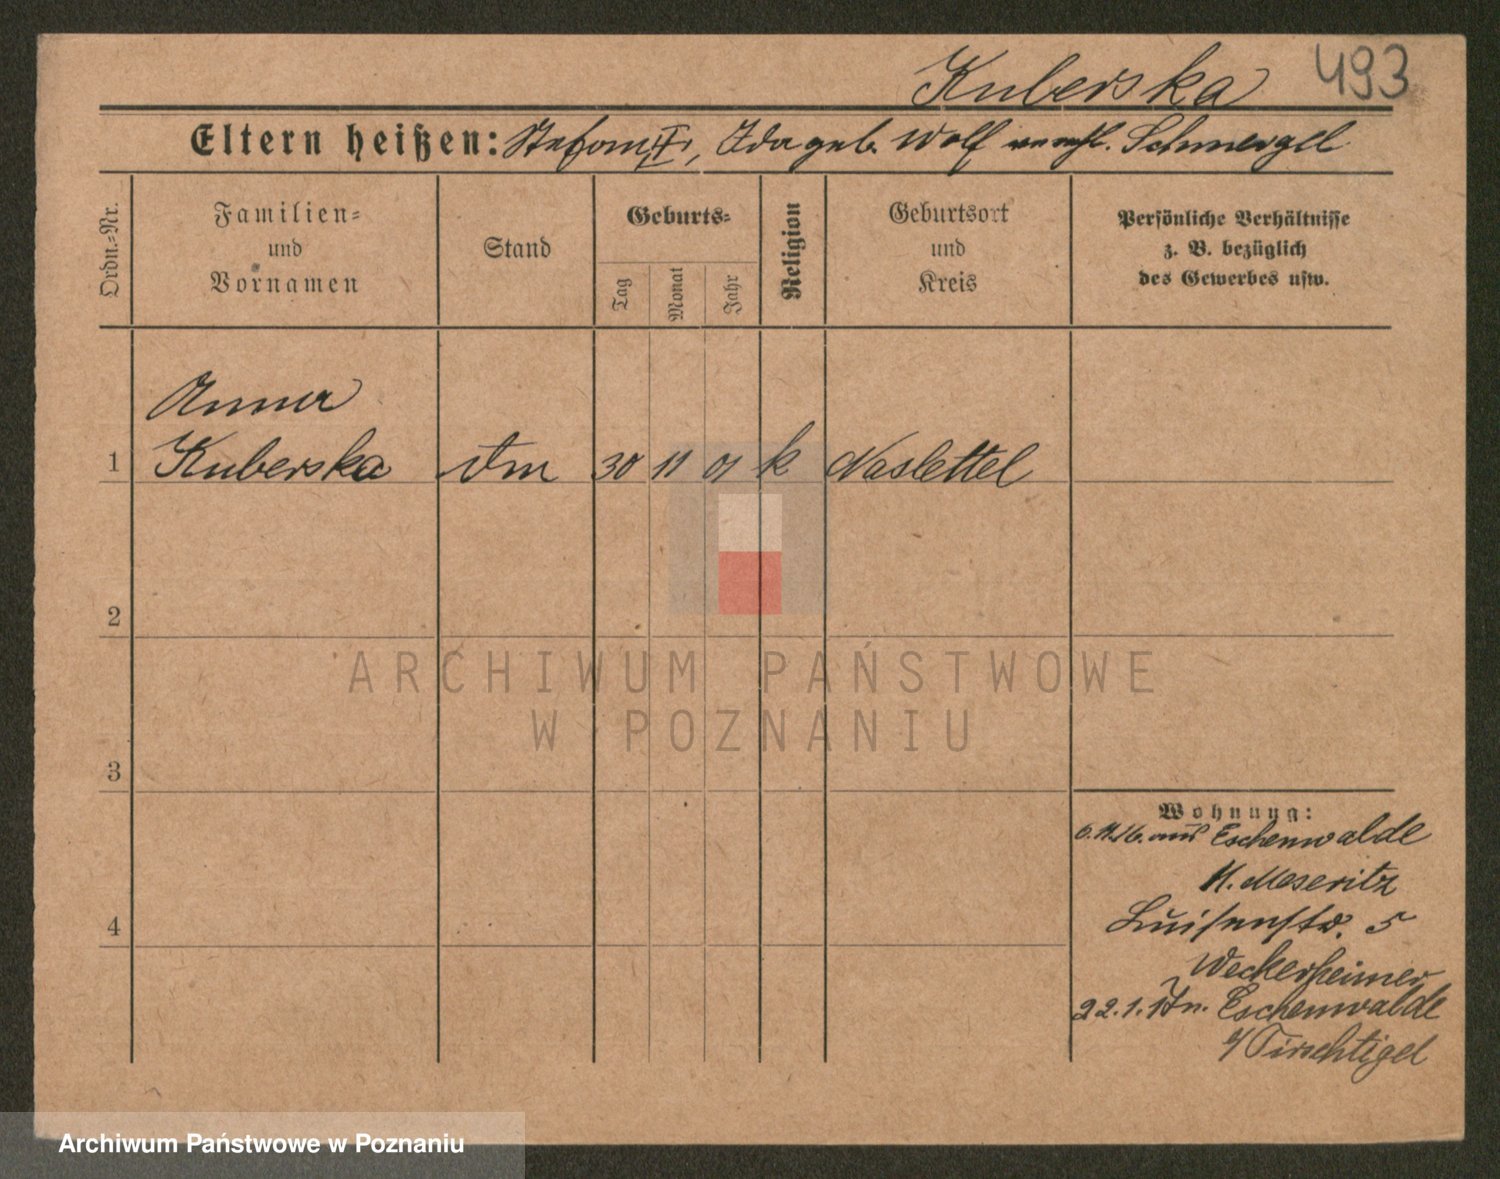 Kuberska 493
Eltern heißen: Stefan, Ida geb. Wolf Schmergel
Ordn.-Nr.
Familien-
und
Vornamen
Stand
Geburts-
Tag
Monat
Jahr
Religion
Geburtsort
und
Kreis
Persönliche Verhältnisse
z. B. bezüglich
des Gewerbes usw.
Anna
1 Kuberska 30 11 01 k Naslettel
2
3
4
Wohnung:
6.11.16. aus Eschenwalde
K. Meseritz
Luisenstr. 5
Weckerheimer
22.1.17 n. Eschenwalde
b/Tirschtigel
ARCHIWUM PAŃSTWOWE
W POZNANIU
Archiwum Państwowe w Poznaniu